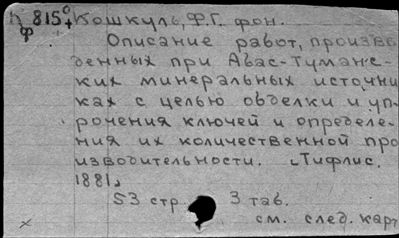 п 815⁰ Кошкуль, Ф.Г. фон.
ф
Описание работ, произве
денных при Абас-Туманс-
ких минеральных источни
ках с целью обделки и уп-
рочения ключей и определе-
ния их количественной про
изводительности. Тифлис.
1881.
53 стр. 3 таб.
см. след. карт